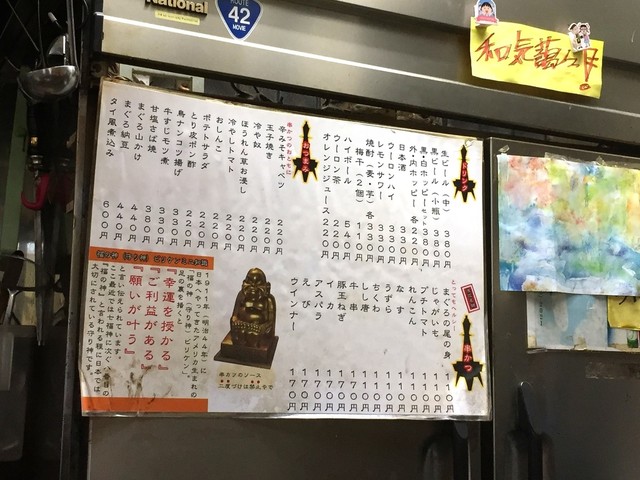 National
ROUTE
42
MOVIE
和気藹々!
ドリンク
生ビール(中) 380円
黒ビール(小瓶) 380円
黒・白ホッピーセット 380円
外・内ホッピー 各220円
日本酒
レモンサワー 330円
ウーロンハイ
焼酎(麦・芋) 各330円
梅干(2個) 110円
ハイボール 540円
ウーロン茶 220円
オレンジジュース 220円
おつまみ
串かつのおともに
辛みそキャベツ 220円
玉子焼き
冷や奴 220円
ほうれん草お浸し
冷やしトマト 220円
おしんこ 220円
ポテトサラダ 220円
とり皮ポン酢 220円
鳥ナンコツ揚げ 220円
牛すじモツ煮 330円
甘塩さば焼 330円
まぐろ山かけ 380円
まぐろ納豆 440円
タイ風煮込み 600円
とってもヘルシー!
串かつ
まぐろの尾の身 110円
じゃがいも 110円
プチトマト 110円
れんこん 110円
なす 110円
うずら 110円
ちくわ 110円
しし唐 110円
牛串 170円
豚玉ねぎ 170円
イカ 170円
アスパラ 170円
えび 170円
ウインナー 170円
串カツのソース
二度づけは禁止やで
福の神(守り神)ビリケンミニ知識
1911年(明治44年)に
日本へやって来たアメリカ生まれの
「福の神(守り神)ビリケン」
足の裏を掻くと
『幸運を授かる』
『ご利益がある』
『願いが叶う』
と言い伝えられています。
ここ最近では七福神に次ぐ八番目の
「福の神」と言われる程に日本では
大切にされている守り神です。